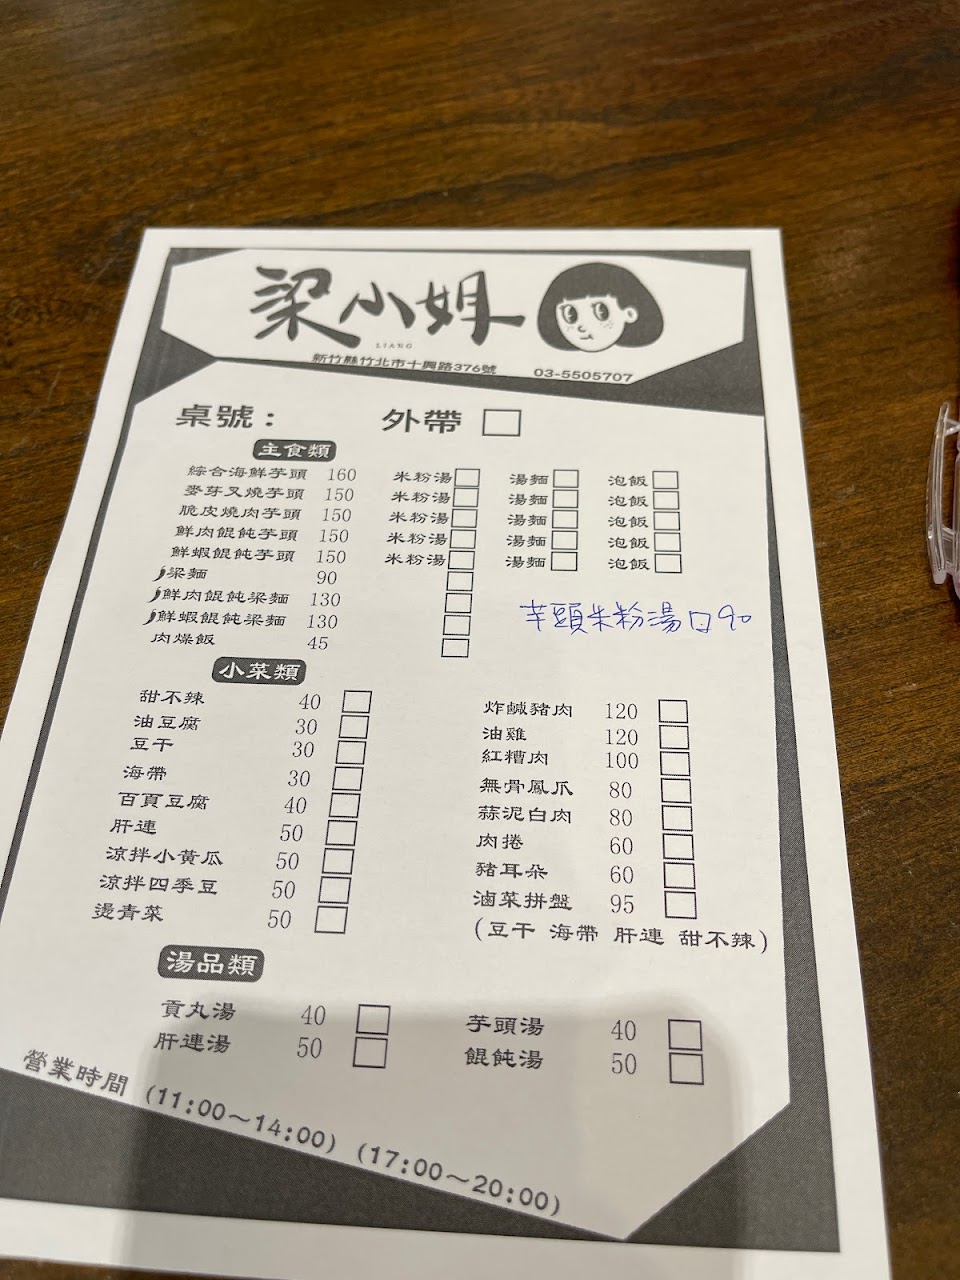 梁小姐
LIANG
新竹縣竹北市十興路376號 03-5505707
桌號： 外帶 □
主食類
綜合海鮮芋頭 160 米粉湯□ 湯麵□ 泡飯□
麥芽叉燒芋頭 150 米粉湯□ 湯麵□ 泡飯□
脆皮燒肉芋頭 150 米粉湯□ 湯麵□ 泡飯□
鮮肉餛飩芋頭 150 米粉湯□ 湯麵□ 泡飯□
鮮蝦餛飩芋頭 150 米粉湯□ 湯麵□ 泡飯□
梁麵 90 □
鮮肉餛飩梁麵 130 □
鮮蝦餛飩梁麵 130 □
肉燥飯 45 □
芋頭米粉湯□90
小菜類
甜不辣 40 □
油豆腐 30 □
豆干 30 □
海帶 30 □
百頁豆腐 40 □
肝連 50 □
涼拌小黃瓜 50 □
涼拌四季豆 50 □
燙青菜 50 □
炸鹹豬肉 120 □
油雞 120 □
紅糟肉 100 □
無骨鳳爪 80 □
蒜泥白肉 80 □
肉捲 60 □
豬耳朵 60 □
滷菜拼盤 95 □
(豆干 海帶 肝連 甜不辣)
湯品類
貢丸湯 40 □ 芋頭湯 40 □
肝連湯 50 □ 餛飩湯 50 □
營業時間 (11:00～14:00) (17:00～20:00)